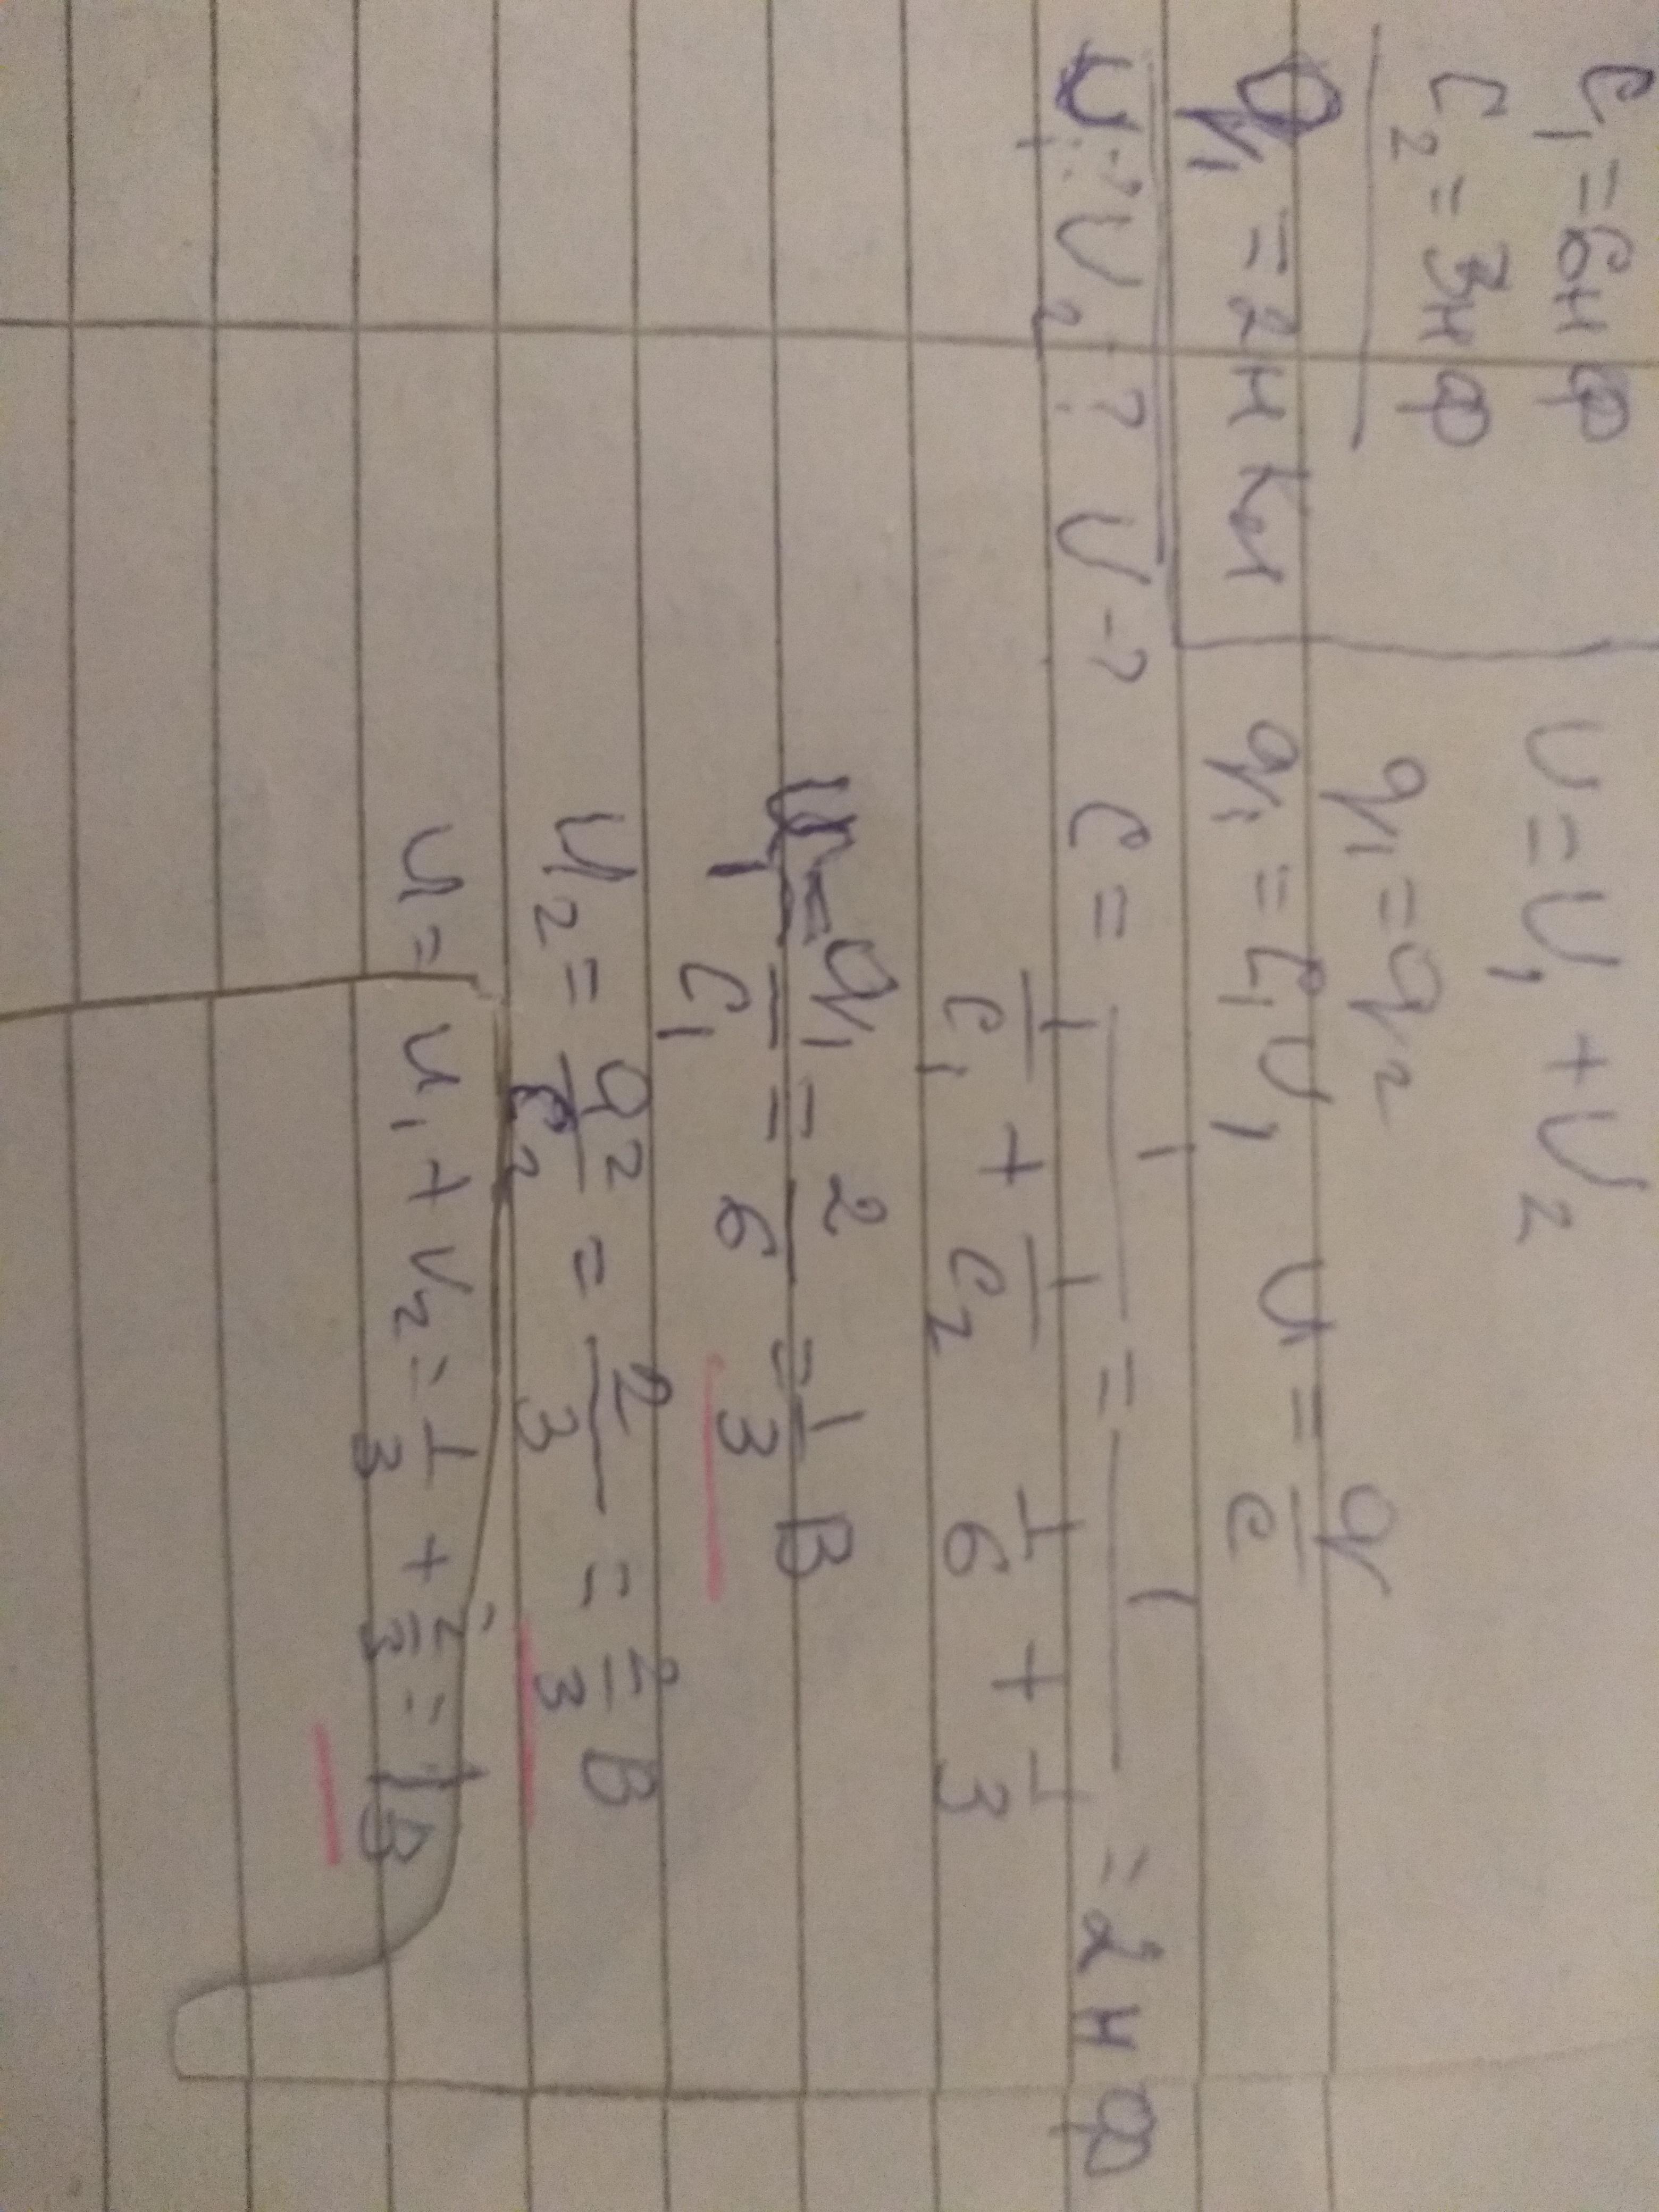 C₁ = 6нФ
C₂ = 3нФ
q₁ = 2н Кл
U₁-? U₂-? U-?
U = U₁ + U₂
q₁ = q₂
q₁ = C₁U₁ U = q/C
C = 1/(1/C₁ + 1/C₂) = 1/(1/6 + 1/3) = 2нФ
U₁ = q₁/C₁ = 2/6 = 1/3 В
U₂ = q₂/C₂ = 2/3 = 2/3 В
U = U₁ + U₂ = 1/3 + 2/3 = 1В